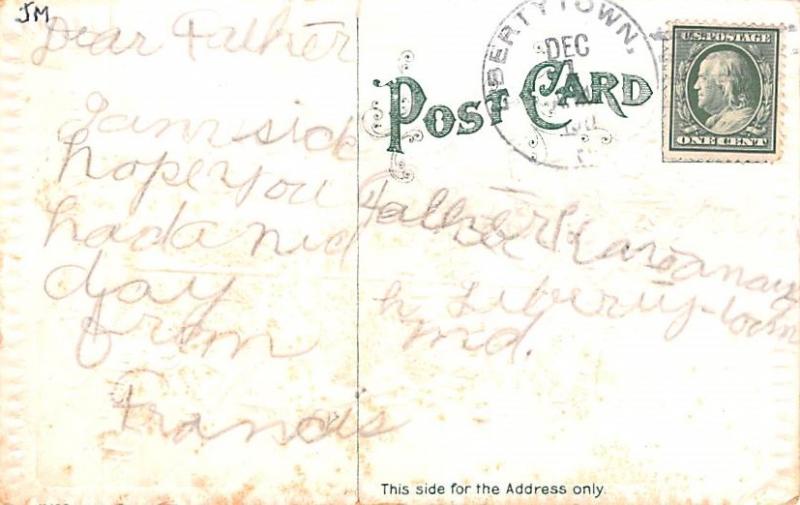 JM
Dear Father
I am sick
hope you
had a nid
day
from
Francis
POST CARD
LIBERTYTOWN,
DEC
U.S. POSTAGE
ONE CENT
Father
Liberty-town
md.
This side for the Address only.